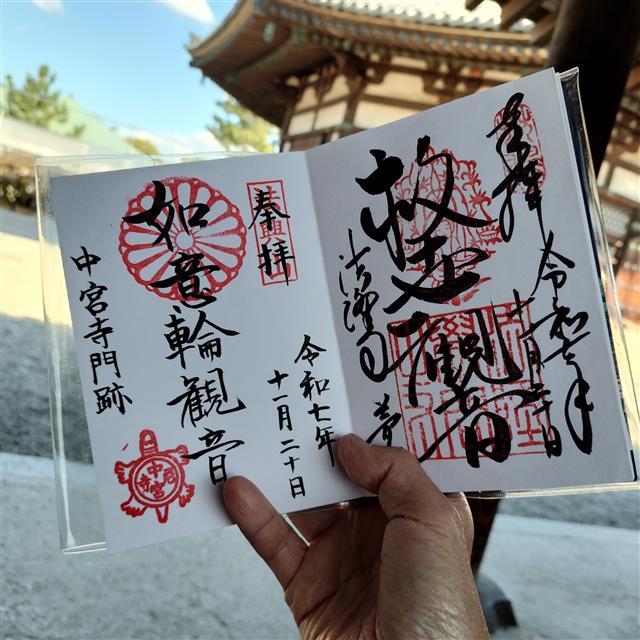 奉拝
令和七年
十一月二十日
救世観音
法隆寺
夢
奉拝
令和七年
十一月二十日
如意輪観音
中宮寺門跡
中宮寺